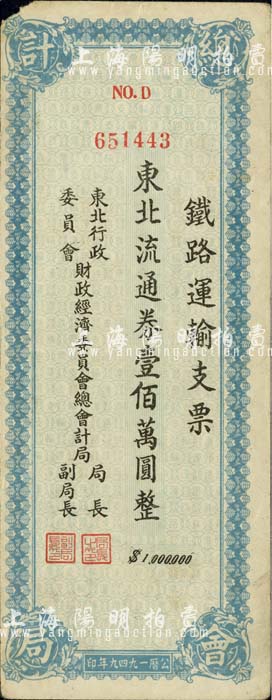 上海陽明拍賣
www.yangmingauction.com
總計
會局
NO. D
651443
鐵路運輸支票
東北流通券壹佰萬圓整
東北行政
委員會
財政經濟委員會總會計局
局長
副局長
$1,000,000
公曆一九四九年印
上海陽明拍賣
www.yangmingauction.com
上海陽明拍賣
www.yangmingauction.com